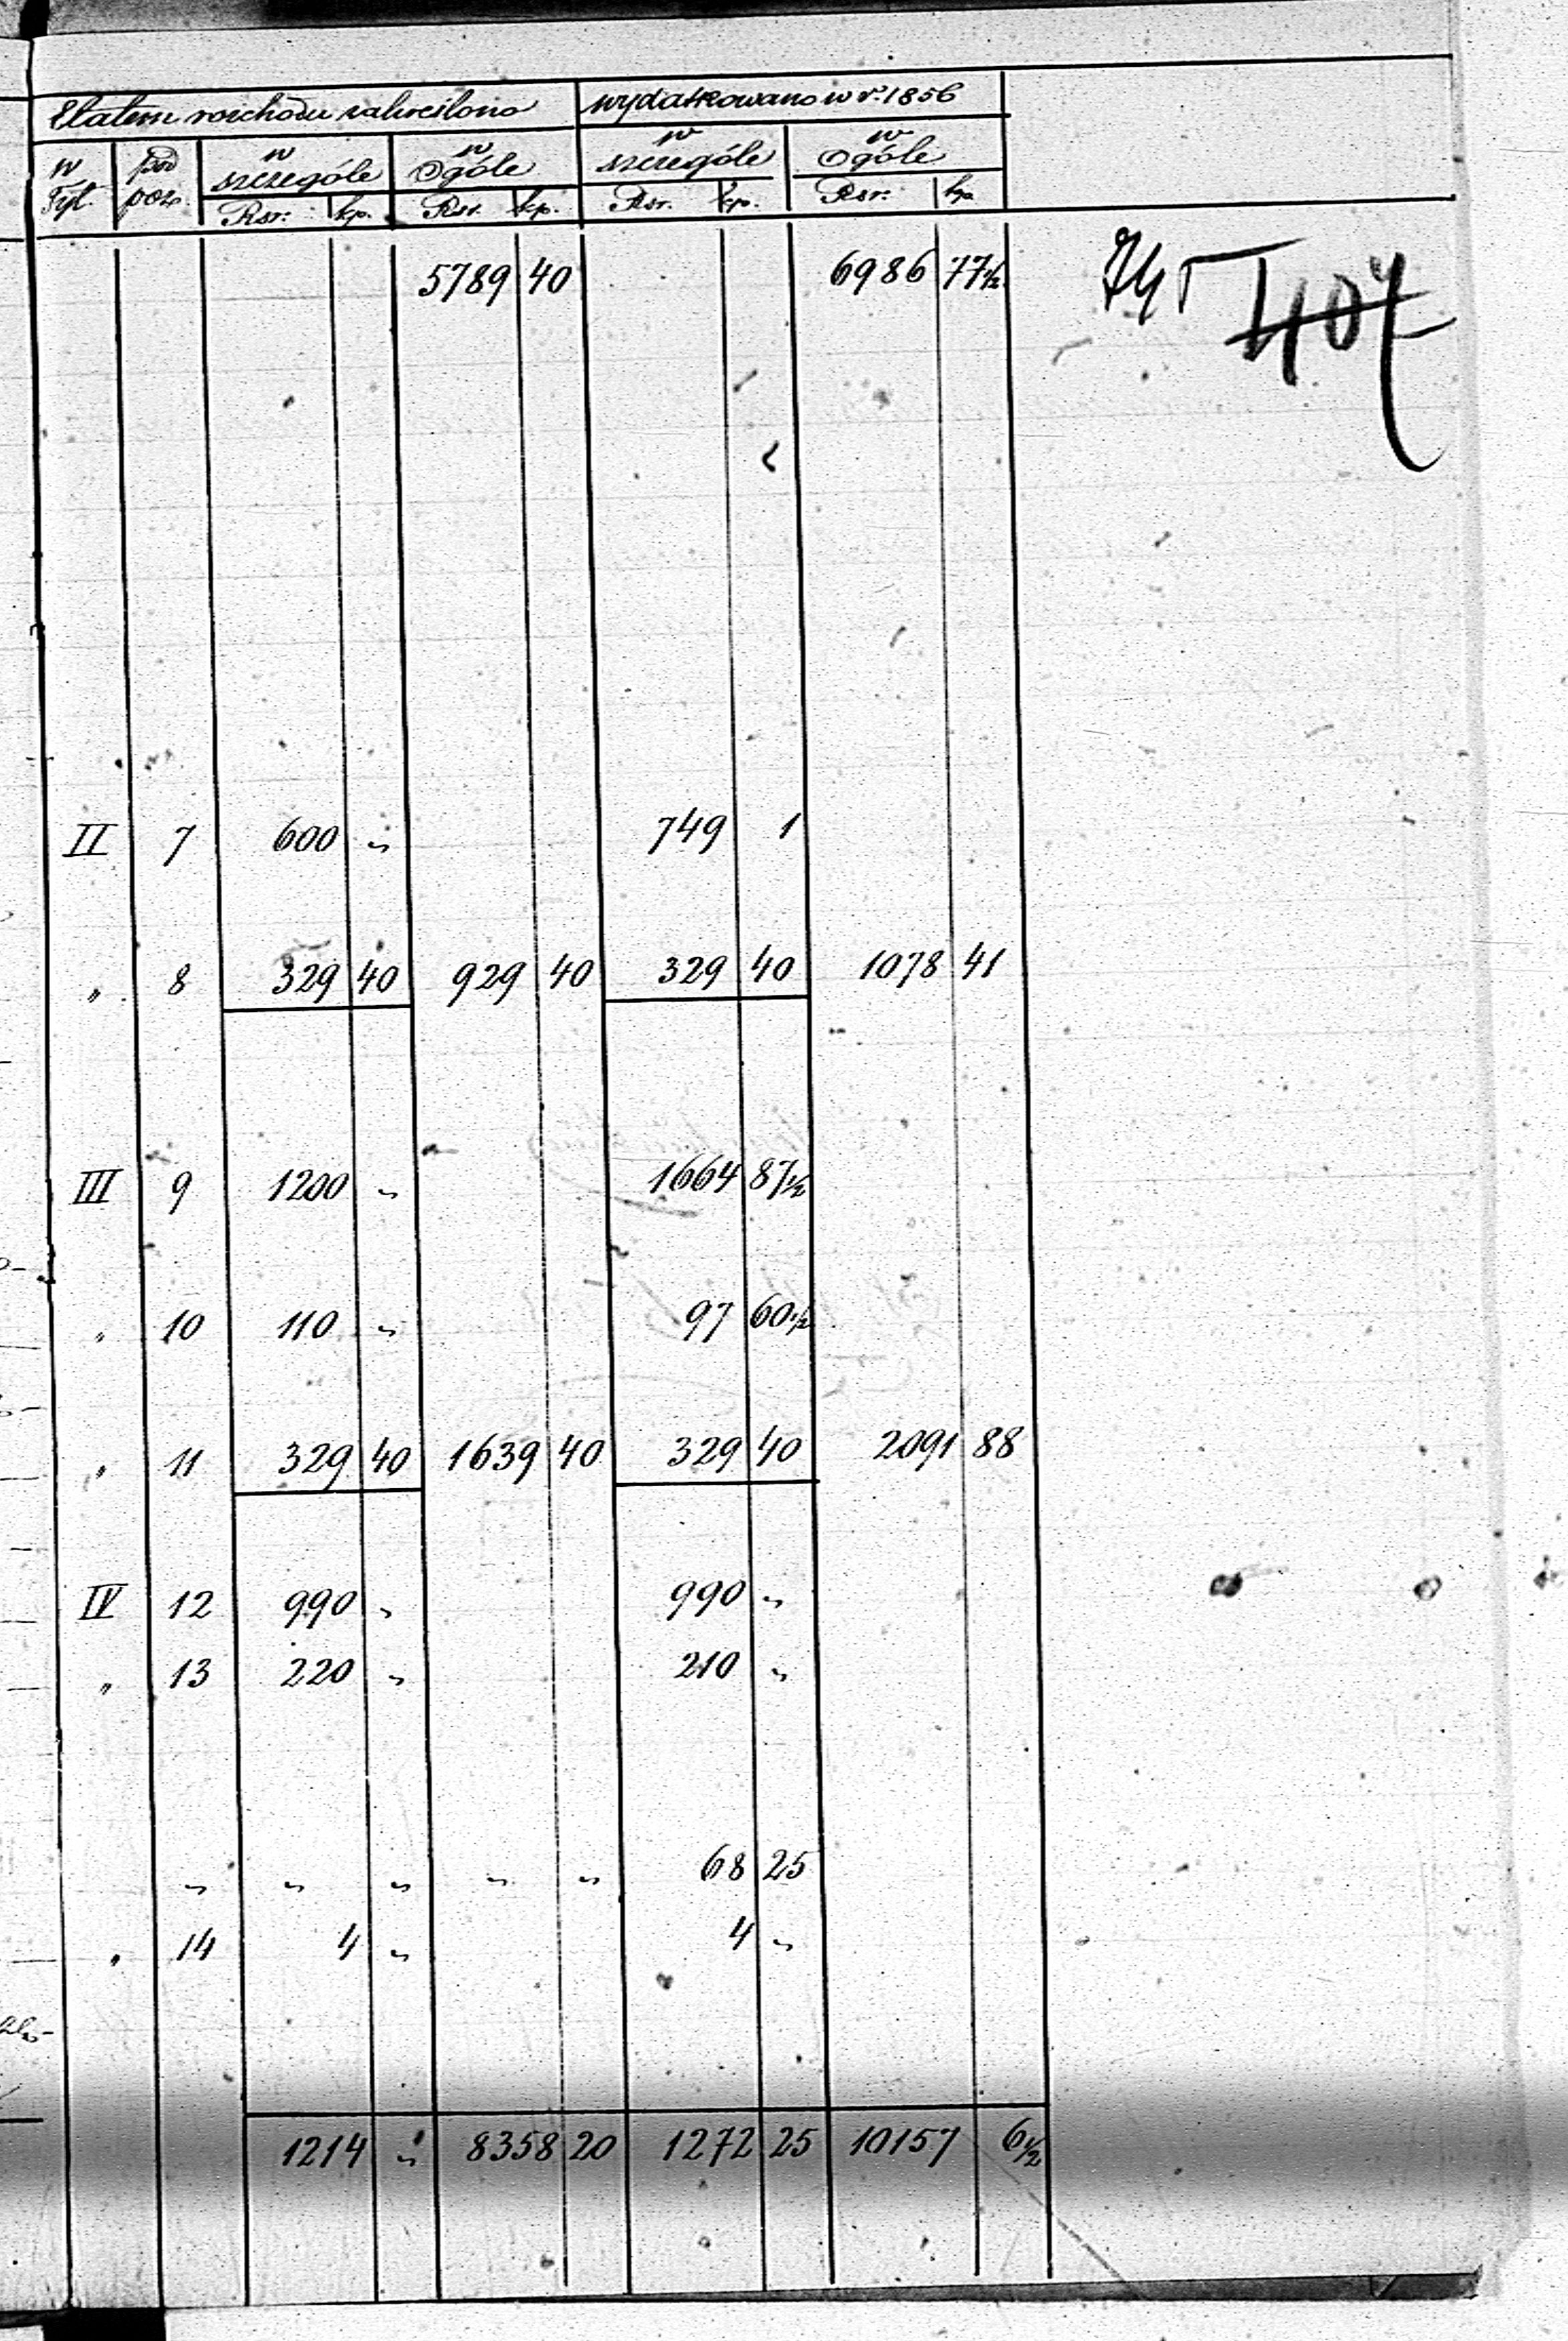 Etatem rozchodu zakreślono wydatkowano w r. 1856
w Tyt. pod poz. w szczególe w Ogóle w szczególe w Ogóle
Rsr: kp. Rsr. kp. Rsr. kp. Rsr: kp.
5789 40 6986 77½
407
II 7 600 " 749 1
" 8 329 40 929 40 329 40 1078 41
III 9 1200 " 1664 87½
" 10 110 " 97 60½
" 11 329 40 1639 40 329 40 2091 88
IV 12 990 " 990 "
" 13 220 " 210 "
" " " " " 68 25
" 14 4 " 4 "
1214 " 8358 20 1272 25 10157 6½